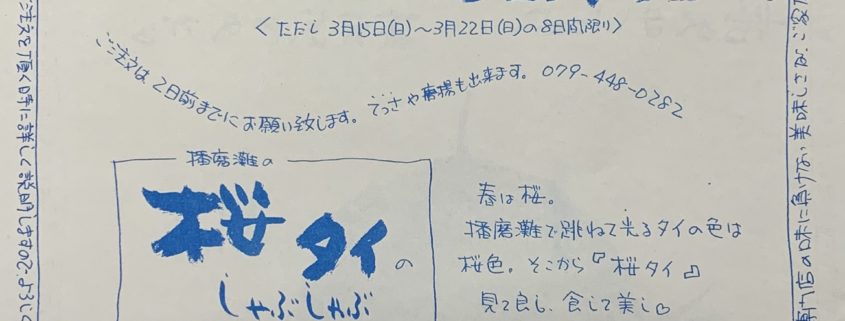 <ただし 3月15日(日)～3月22日(日)の8日間限り>
ご注文は、2日前までにお願い致します。てっさや唐揚も出来ます。079-448-0282
播磨灘の
桜タイの
しゃぶしゃぶ
春は桜。
播磨灘で跳ねて光るタイの色は
桜色。そこから『桜タイ』
見て良し、食して美し♡
ご注文を頂く時に詳しく説明しますので、よろしく
専門店の味に負けない美味しさな、ご家